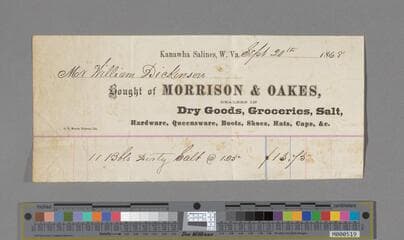 Kanawha Salines, W. Va. Sept 20th 1868
Mr William Dickinson
Bought of MORRISON & OAKES,
DEALERS IN
Dry Goods, Groceries, Salt,
Hardware, Queensware, Boots, Shoes, Hats, Caps, &c.
11 Bbls Salt @ $13.75
inches
centimeters
M000519